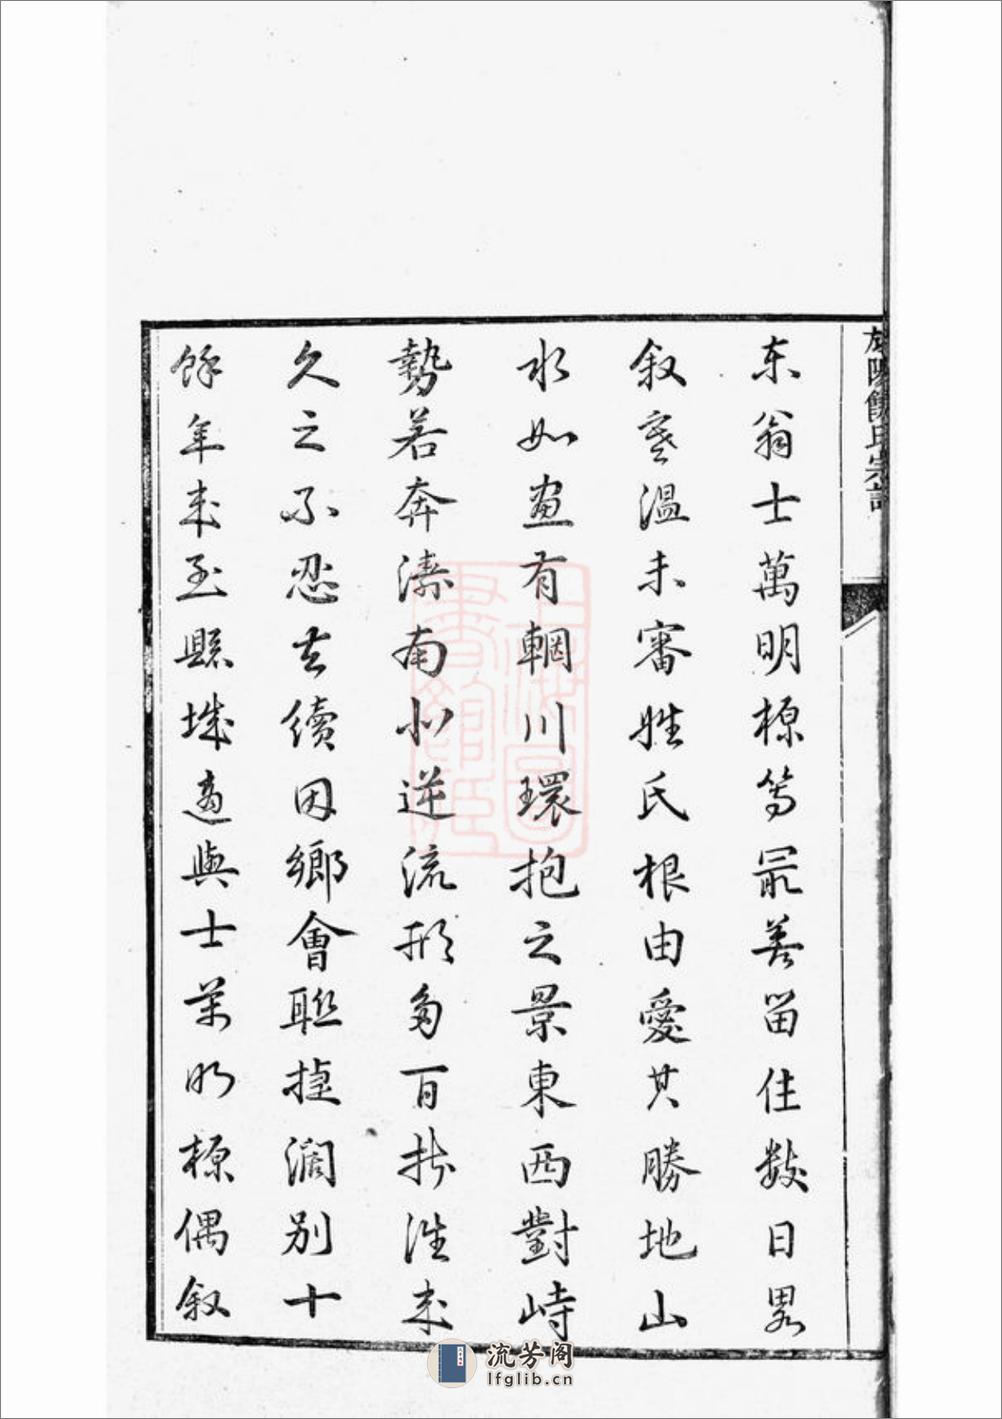 东翁士萬明椋等最善留住数日畧
叙寒溫未審姓氏根由愛其勝地山
水如畫有輞川環抱之景東西對峙
勢若奔潆南北逆流形多百折往來
久之不忍去續因鄉會聯捷濶別十
餘年來至縣城適與士萬明椋偶叙
上海圖書館藏
流芳阁
lfglib.cn